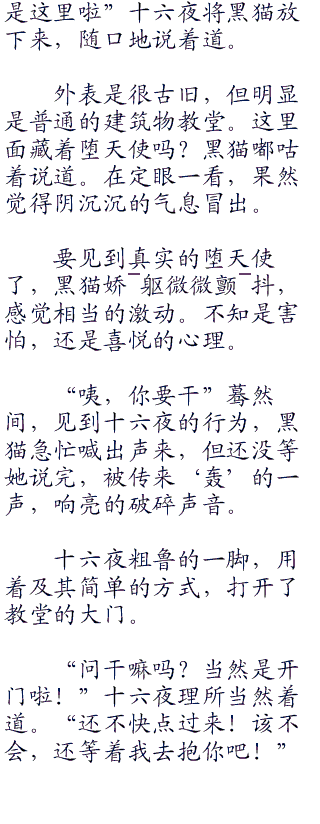 是这里啦” 十六夜将黑猫放
下来，随口地说着道。
外表是很古旧，但明显
是普通的建筑物教堂。这里
面藏着堕天使吗？黑猫嘟咕
着说道。在定眼一看，果然
觉得阴沉沉的气息冒出。
要见到真实的堕天使
了，黑猫娇¯躯微微颤¯抖，
感觉相当的激动。不知是害
怕，还是喜悦的心理。
“咦，你要干”蓦然
间，见到十六夜的行为，黑
猫急忙喊出声来，但还没等
她说完，被传来‘轰’的一
声，响亮的破碎声音。
十六夜粗鲁的一脚，用
着及其简单的方式，打开了
教堂的大门。
“问干嘛吗？当然是开
门啦！”十六夜理所当然着
道。“还不快点过来！该不
会，还等着我去抱你吧！”